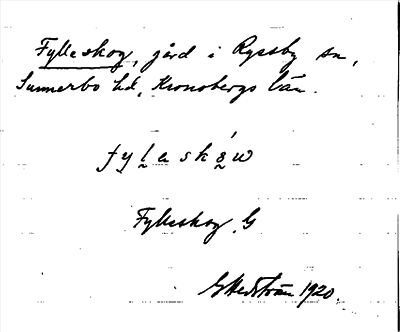 Fylleskog, gård i Ryssby sn,
Sunnerbo hd, Kronobergs län.
fylesków
Fylleskog, G
G Hedström 1920.